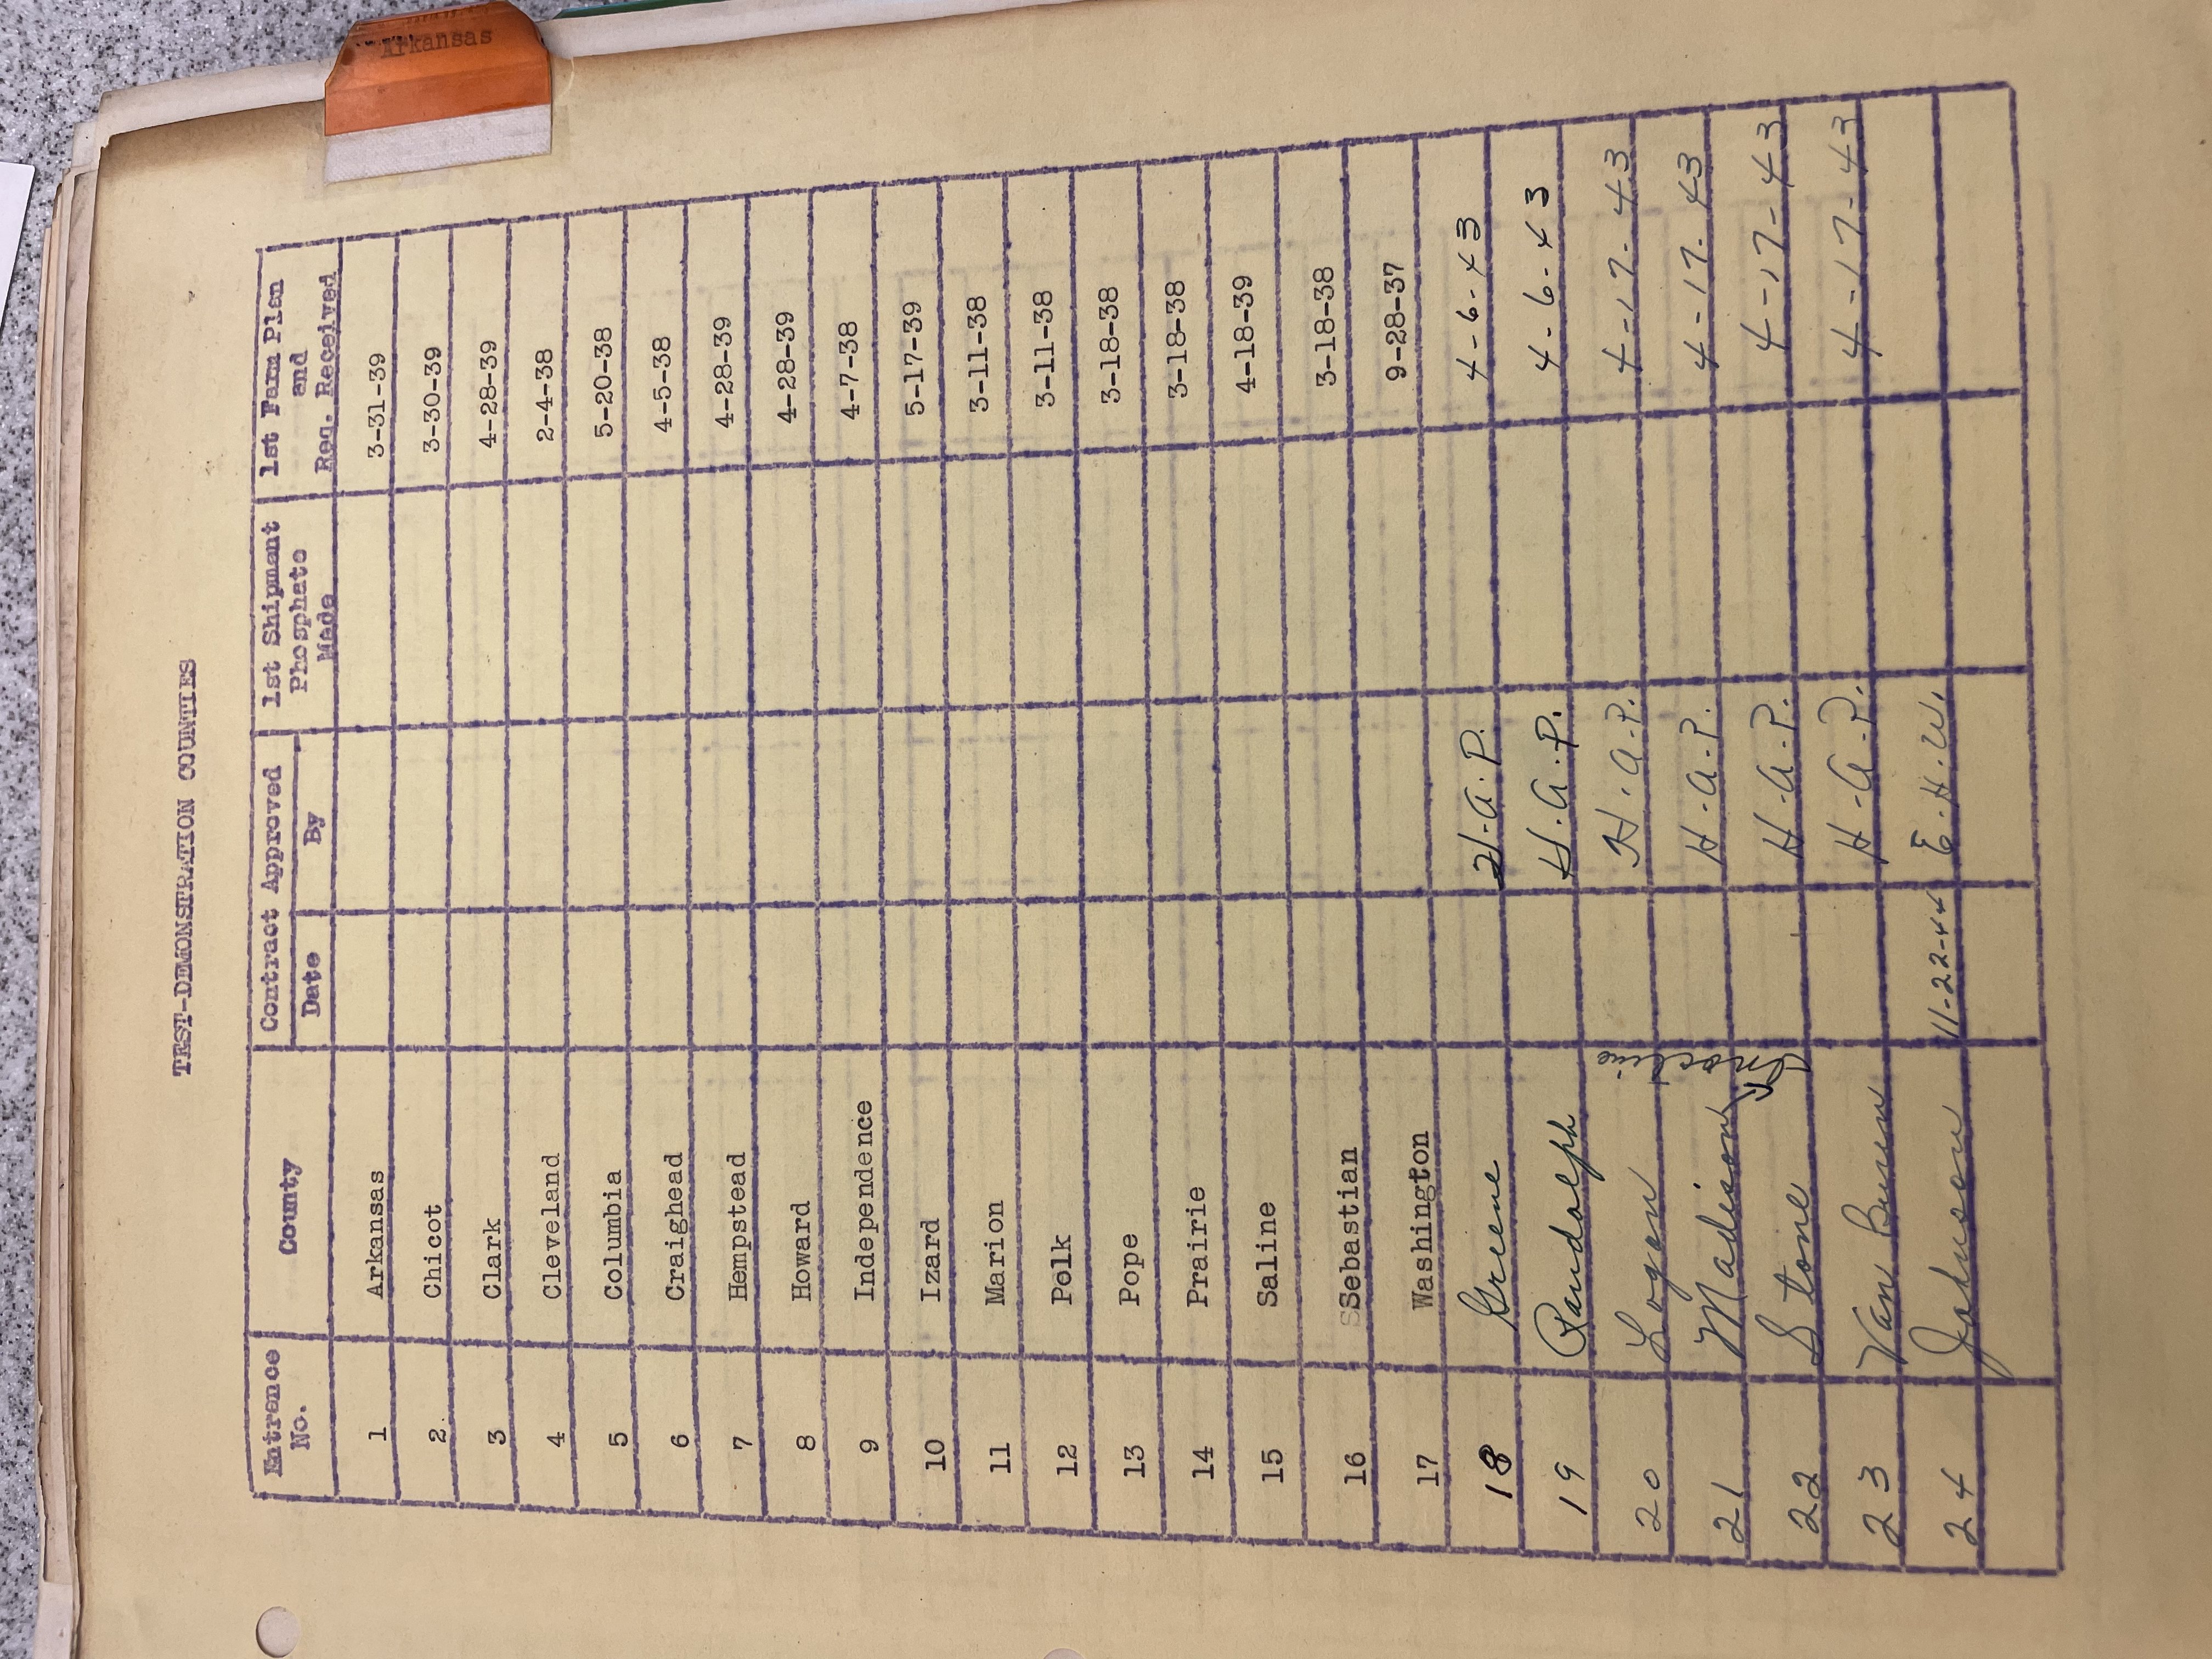 TEST-DEMONSTRATION COUNTIES
Entrence No. County Contract Approved Date By 1st Shipment Phosphate Made 1st Farm Plan and Req. Received
1 Arkansas 3-31-39
2. Chicot 3-30-39
3 Clark 4-28-39
4 Cleveland 2-4-38
5 Columbia 5-20-38
6 Craighead 4-5-38
7 Hempstead 4-28-39
8 Howard 4-28-39
9 Independence 4-7-38
10 Izard 5-17-39
11 Marion 3-11-38
12 Polk 3-11-38
13 Pope 3-18-38
14 Prairie 3-18-38
15 Saline 4-18-39
16 SSebastian 3-18-38
17 Washington 9-28-37
18 Greene H.A.P. 4-6-43
19 Randolph H.A.P. 4-6-43
20 Logan H.A.P. 4-17-43
21 Madison H.A.P. 4-17-43
22 Stone H.A.P. 4-17-43
23 Van Buren H.A.P. 4-17-43
24 Johnson 11-22-44 E.H.W.
Inactive
Arkansas